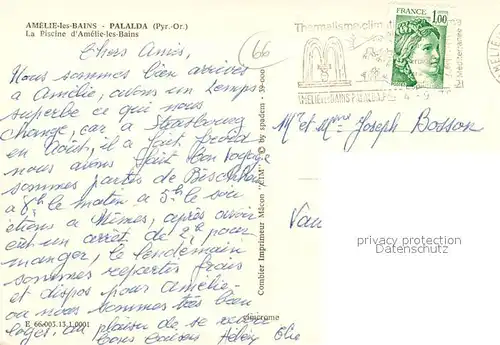 AMÉLIE-les-BAINS - PALALDA (Pyr.-Or.)
La Piscine d'Amélie-les-Bains
66
Chers Amis,
Nous sommes bien arrivés
à Amélie, avons un temps
superbe ce qui nous
change, car à Strasbourg
en Août, il a fait froid
nous avons fait bon voyage
sommes partis de Bischheim
à 8h le matin à 5h le soir
étions à Nîmes, après avoir
eût un arrêt de 2h pour
manger, le lendemain
sommes repartis frais
et dispos pour Amélie
ou nous sommes très bien
logés. au plaisir de se revoir
bons baisers
E 66.003.13.1.0001
Combier Imprimeur Mâcon "CIM" © by spadem - 39-000
cimcrome
Thermalisme-climat
Méditerranée
AMÉLIE LES BAINS PALALDA
FRANCE
1,00
Mr et Mme Joseph Bosson
Vau
privacy protection
AnsichtskartenVersand.com